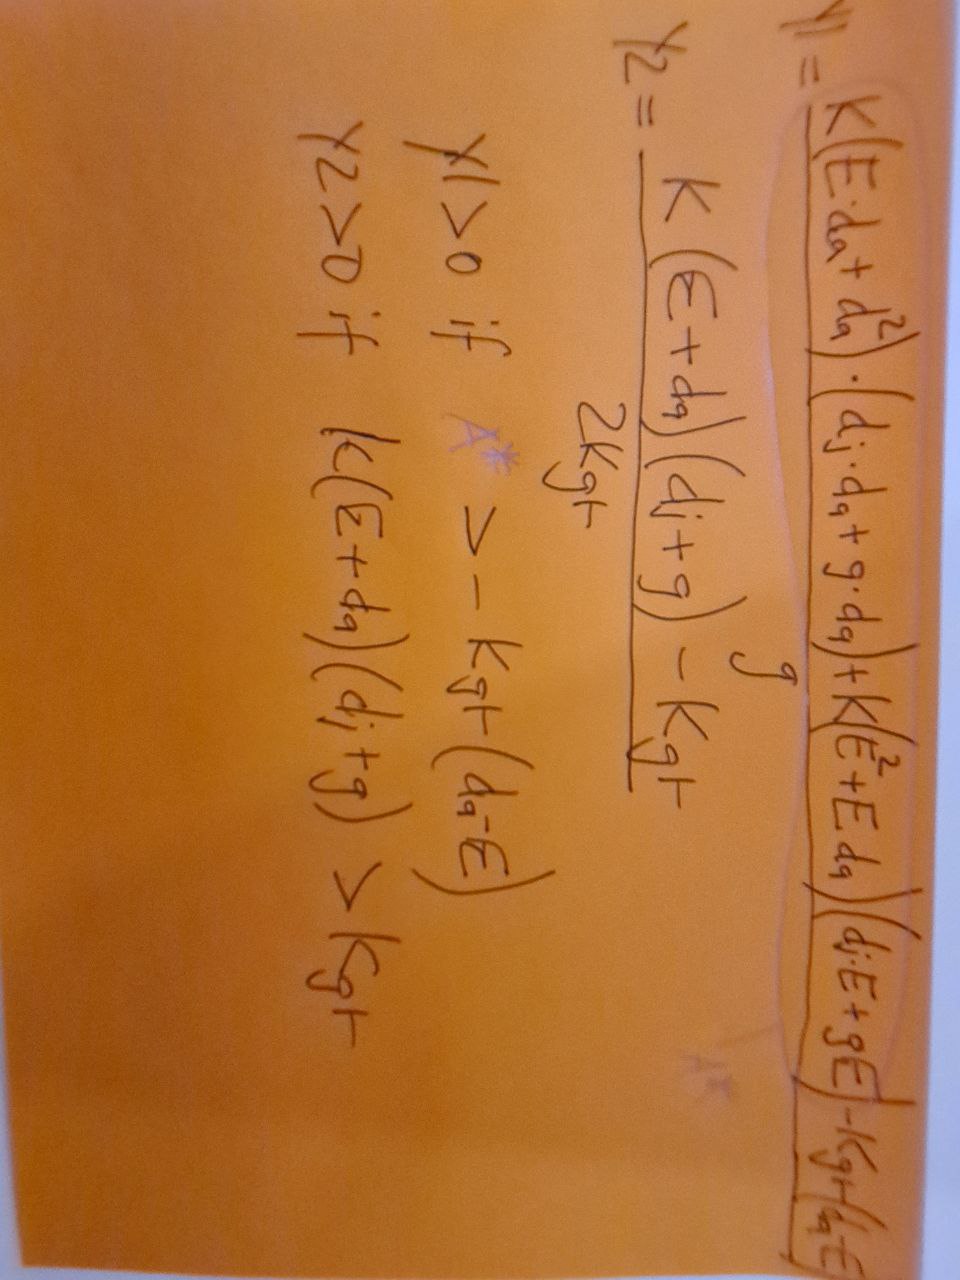 Y1 = K(E·da + da²)·(dj·da + g·da) + K(E² + E da)(dj·E + gE) - Kgr(da-E
g
A*
Y2 = K(E + da)(dj + g) - Kgr
2Kgr
Y1 > 0 if A* > - Kgr(da-E)
Y2 > 0 if K(E + da)(dj + g) > Kgr